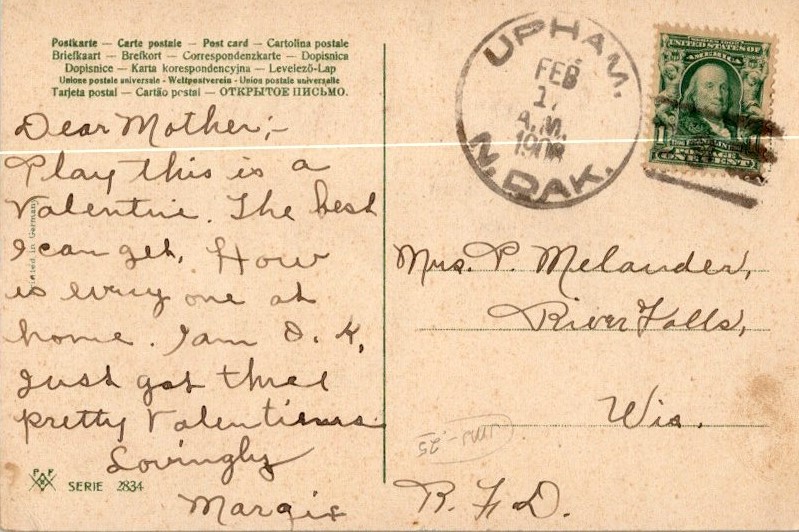 Postkarte — Carte postale — Post card — Cartolina postale
Briefkaart — Brefkort — Correspondenzkarte — Dopisnica
Dopisnice — Karta korespondencyjna — Levelező-Lap
Unione postale universale - Weltpostverein - Union postale universelle
Tarjeta postal — Cartão postal — ОТКРЫТОЕ ПИСЬМО.
Dear Mother;-
Play this is a
Valentine. The best
I can get. How
is every one at
home. I am O.K.
Just got three
pretty Valentines
Lovingly
Margie
Printed in Germany
PF
SERIE 2834
UPHAM.
FEB
17
A.M.
1908
N. DAK.
UNITED STATES OF
AMERICA
POSTAGE
ONE CENT
Mrs. P. Melander,
River Falls,
Wis.
R.F.D.
.25